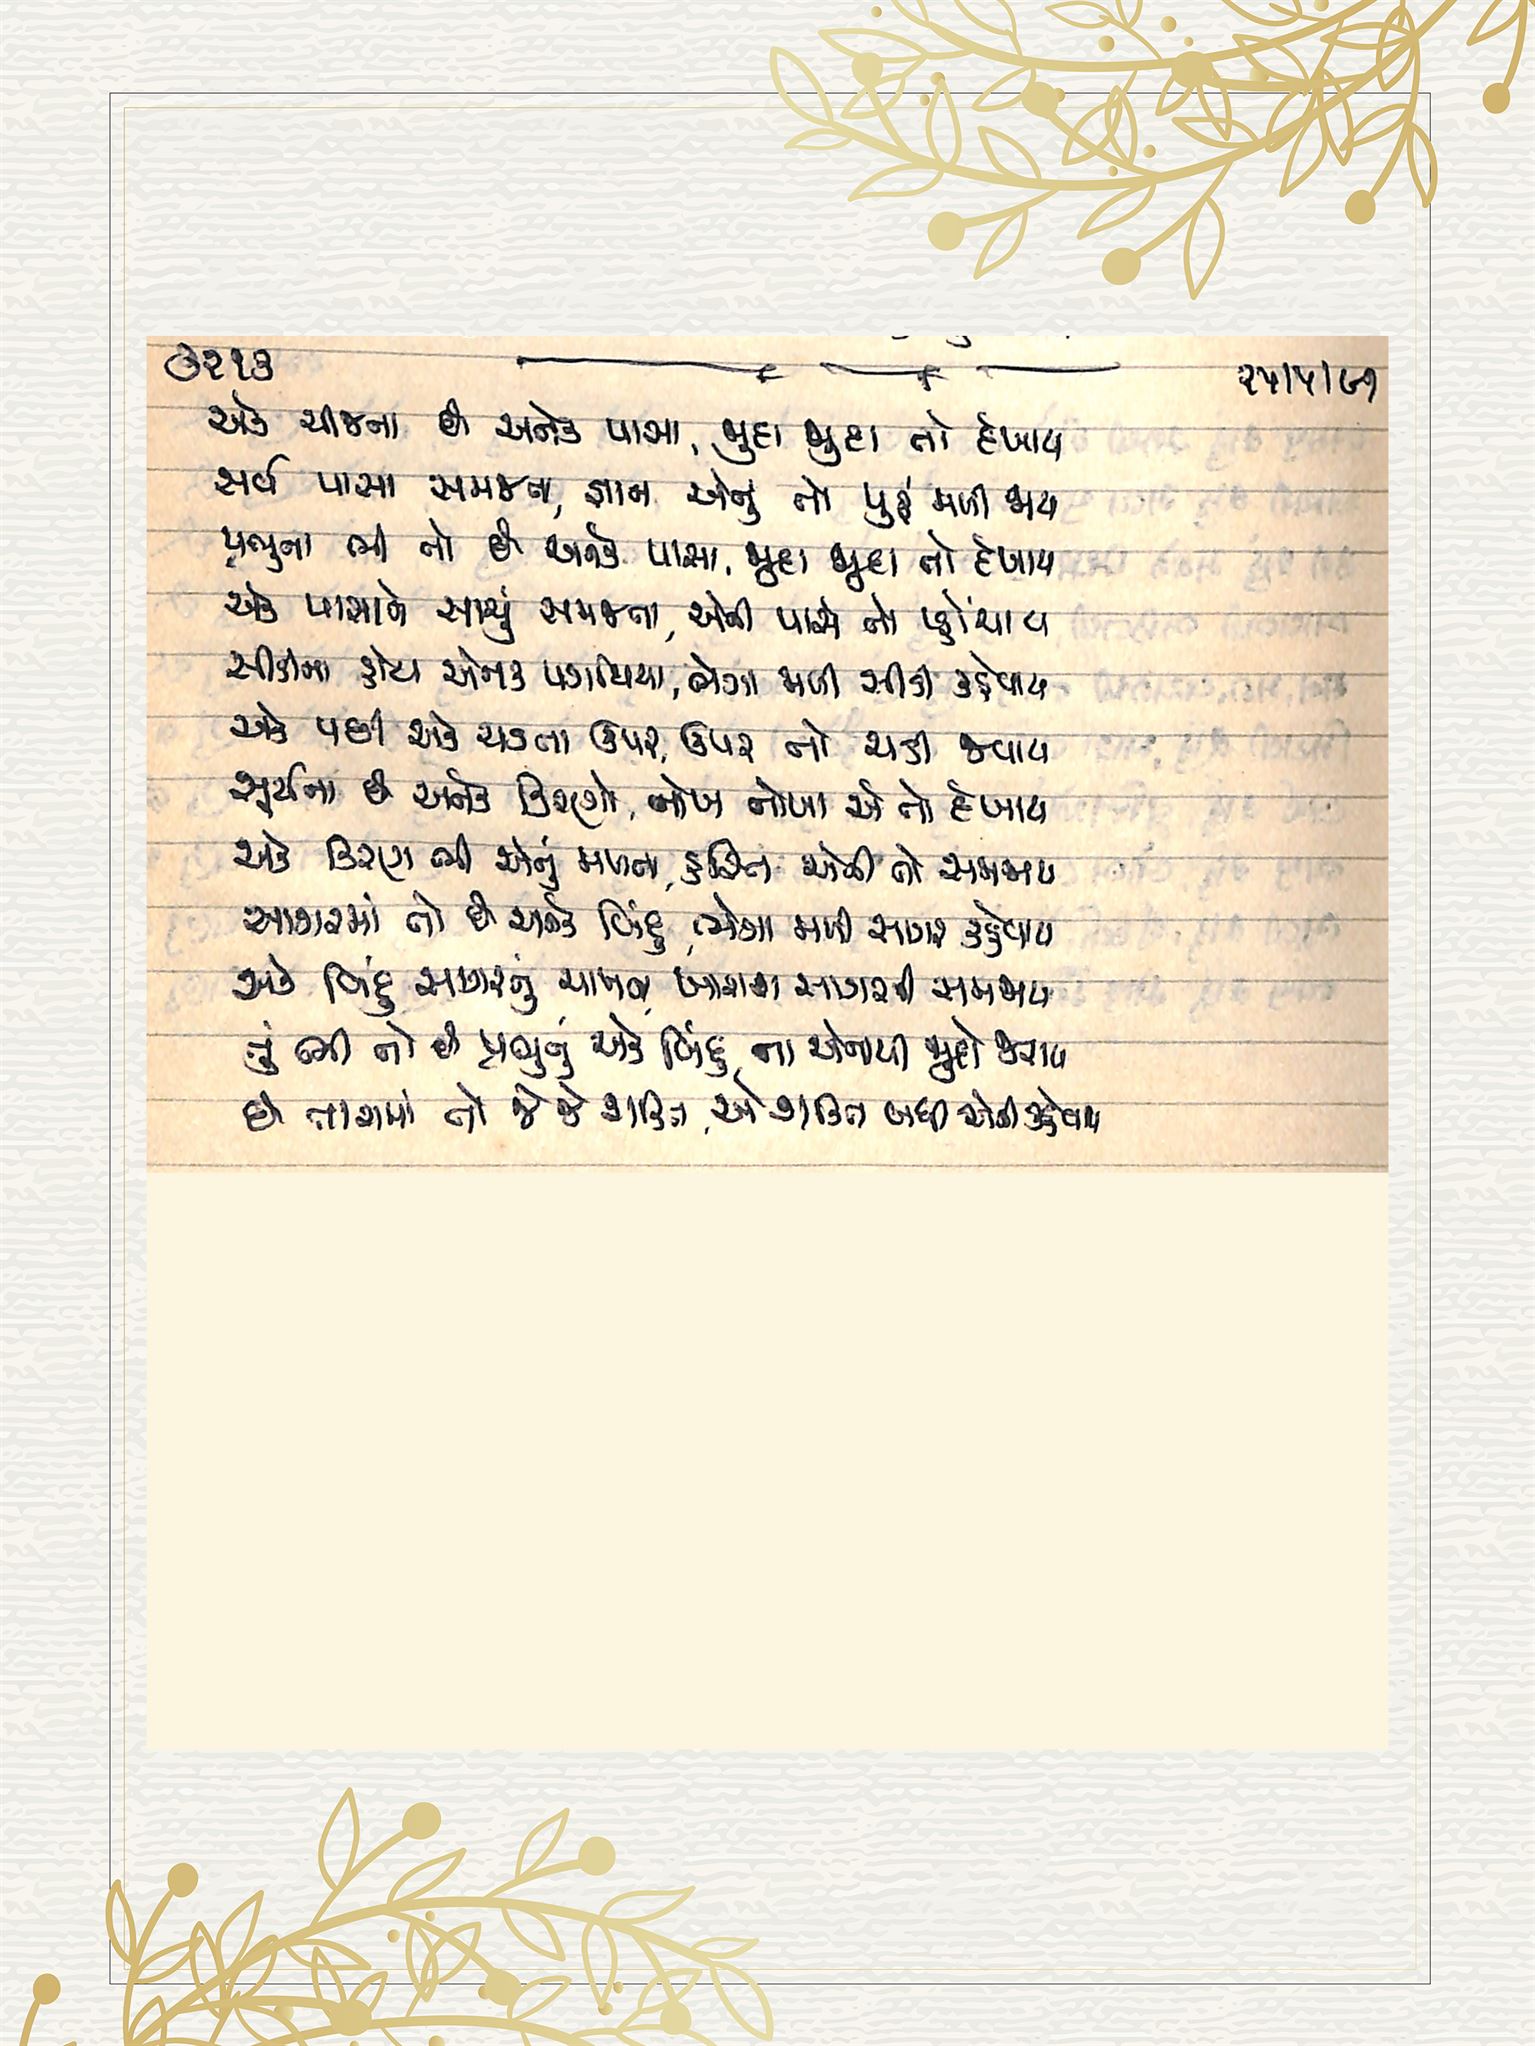 ૩૨૧૩
૨૫/૫/૯૧
એક ચીજના છે અનેક પાસા, જુદા જુદા તો દેખાય
સર્વ પાસા સમજતા, જ્ઞાન એનું તો પુરૂં મળી જાય
પ્રભુના ભી તો છે અનેક પાસા, જુદા જુદા તો દેખાય
એક પાસાને સાચું સમજતા, એની પાસે તો પ્હોંચાય
સીડીના હોય અનેક પગથિયા, ભેગા મળી સીડી કહેવાય
એક પછી એક ચડતા ઉપર, ઉપર તો ચડી જવાય
સૂર્યના છે અનેક કિરણો, નોખ નોખા એ તો દેખાય
એક કિરણ ભી એનું મળતા, હસ્તિ એની તો સમજાય
સાગરમાં તો છે અનેક બિંદુ, ભેગા મળી સાગર કહેવાય
એક બિંદુ સાગરનું ચાખતા, ખારાશ સાગરની સમજાય
તું ભી તો છે પ્રભુનું એક બિંદુ, ના એનાથી જુદો કરાય
છે તારામાં તો જે જે શક્તિ, એ શક્તિ બધી એની કહેવાય